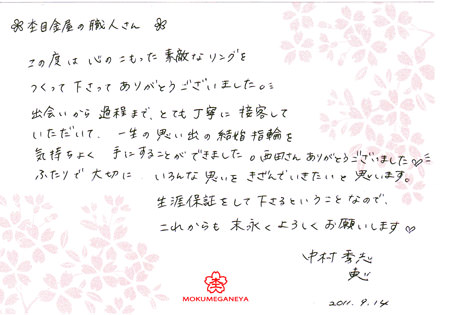 ❀杢目金屋の職人さん❀
この度は心のこもった素敵なリングを
つくって下さってありがとうございました。
出会いから過程まで、とても丁寧に接客して
いただいて、一生の思い出の結婚指輪を
気持ちよく手にすることができました。西田さんありがとうございました♡
ふたりで大切に いろんな思いをきざんでいきたいと思います。
生涯保証をして下さるということなので、
これからも末永くよろしくお願いします♡
中村
2011.9.14
MOKUMEGANEYA